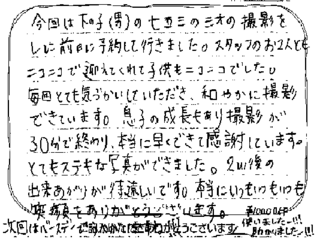 今回は下の子(男)の七五三の三才の撮影を
しに前日に予約して行きました。スタッフのお2人とも
ニコニコで迎えてくれて子供もニコニコでした。
毎回とても気づかいしていただき、和やかに撮影
できています。息子の成長もあり撮影が
30分で終わり、本当に早くできて感謝しています。
とてもステキな写真ができました。2W後の
出来あがりが待遠しいです。本当にいつもいつも
笑顔をありがとうございます。
¥10000OFF
使いました〜!!!
助かりました〜!!
次回はバースデーに
ありがとうございます